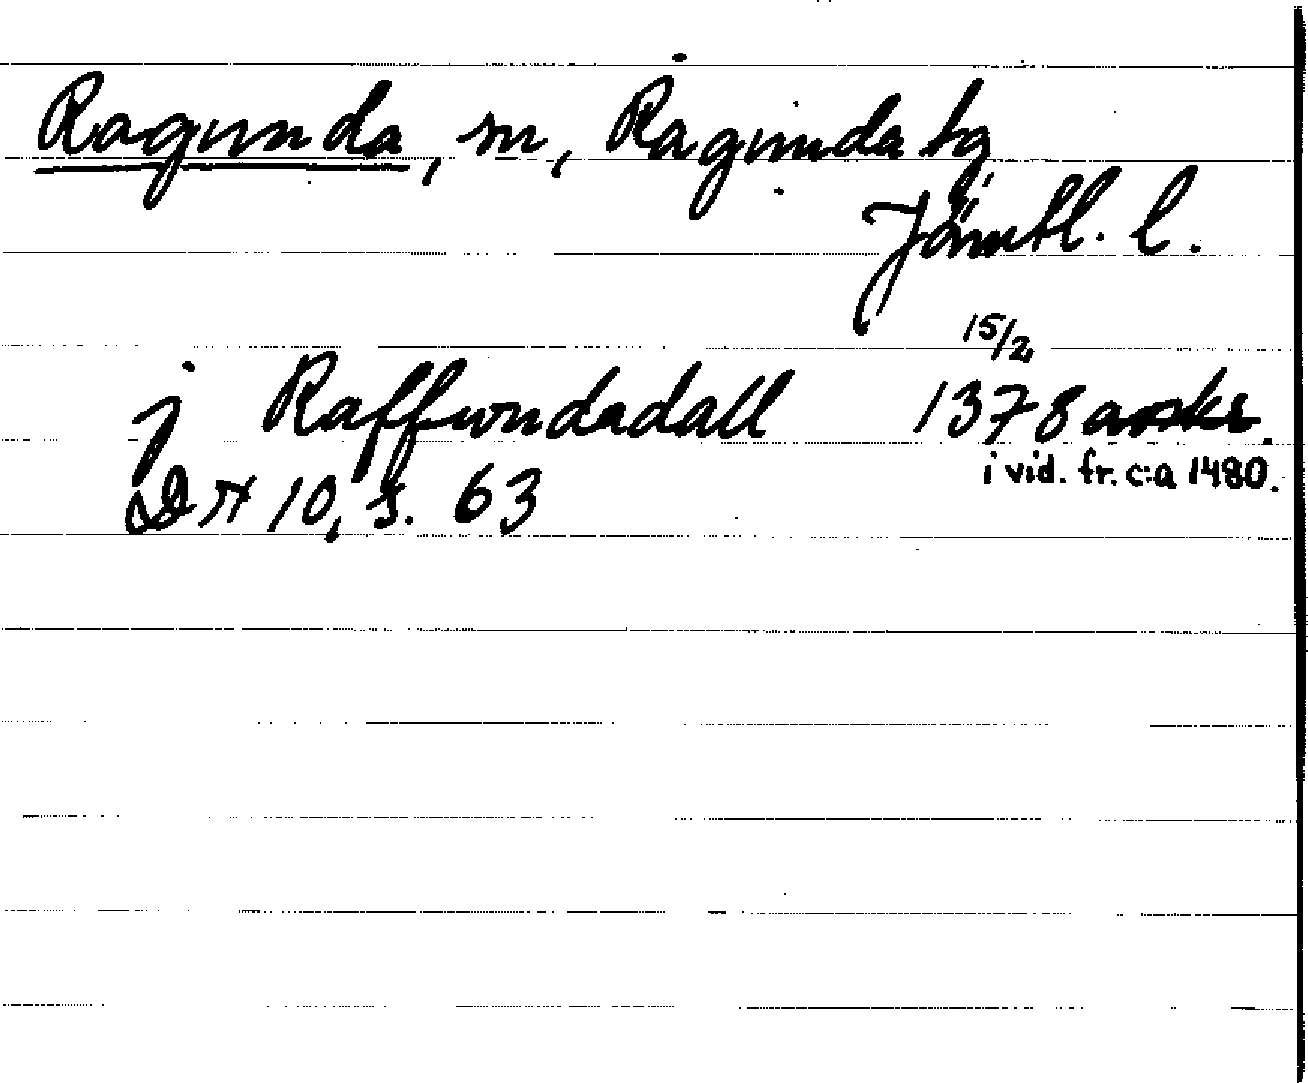 Ragunda, sn, Ragunda tg,
Jämtl. l.
j Raffwndadall 15/2 1378 avskr.
i vid. fr. c:a 1480.
DN 10, s. 63